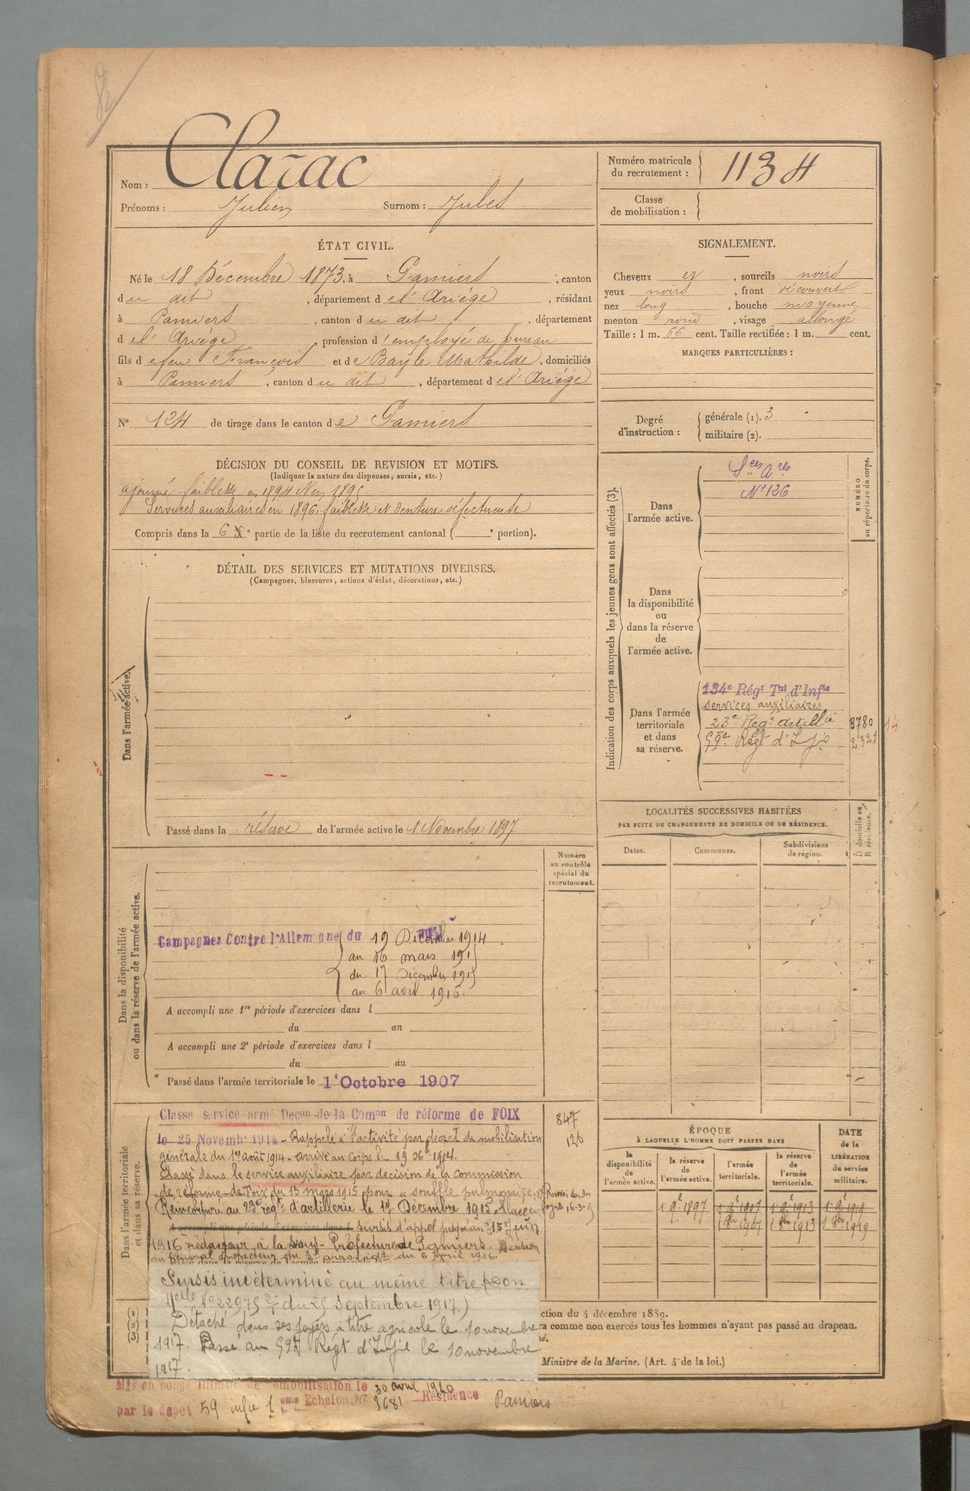 Nom : Clarac
Prénoms : Julien Surnom : Jules
Numéro matricule du recrutement : 1134
Classe de mobilisation :
ÉTAT CIVIL.
Né le 18 Décembre 1873, à Pamiers, canton
du dit, département de l'Ariège, résidant
à Pamiers, canton du dit, département
de l'Ariège, profession d'employé de bureau
fils de feu François et de Bayle Mathilde, domiciliés
à Pamiers, canton du dit, département de l'Ariège
N° 124 de tirage dans le canton de Pamiers
SIGNALEMENT.
Cheveux et, sourcils noirs
yeux noirs, front découvert
nez long, bouche moyenne
menton rond, visage allongé
Taille : 1 m. 66 cent. Taille rectifiée : 1 m. cent.
MARQUES PARTICULIÈRES :
Degré d'instruction : générale (1). 3
militaire (2).
DÉCISION DU CONSEIL DE REVISION ET MOTIFS.
(Indiquer la nature des dispenses, sursis, etc.)
ajourné faiblesse en 1894 1895
Services auxiliaires en 1896, faiblesse et denture défectueuse
Compris dans la 6 e partie de la liste du recrutement cantonal ( e portion).
DÉTAIL DES SERVICES ET MUTATIONS DIVERSES.
(Campagnes, blessures, actions d'éclat, décorations, etc.)
Dans l'armée active.
Passé dans la réserve de l'armée active le 1 Novembre 1897
Indication des corps auxquels les jeunes gens sont affectés (3).
NUMÉRO au répertoire du corps.
Dans l'armée active.
Sces Ares
N° 126
Dans la disponibilité ou dans la réserve de l'armée active.
Dans l'armée territoriale et dans sa réserve.
134e Régt Tal d'Infie
services auxiliaires
23e Regt artillie 3780 14
59e Regt d'Infie
LOCALITÉS SUCCESSIVES HABITÉES
PAR SUITE DE CHANGEMENTS DE DOMICILE OU DE RÉSIDENCE.
Dates. Communes. Subdivisions de région. D domicile ou R résidence.
Dans la disponibilité ou dans la réserve de l'armée active.
Numéro au contrôle spécial du recrutement.
Campagnes Contre l'Allemagne du 19 Décembre 1914
au 16 mars 1915
du 17 Décembre 1915
au 6 avril 1916.
A accompli une 1re période d'exercices dans l
du au
A accompli une 2e période d'exercices dans l
du au
Passé dans l'armée territoriale le 1er Octobre 1907
Dans l'armée territoriale et dans sa réserve.
847
126
Classe service armé Décon de la Comon de réforme de FOIX
le 25 Novembre 1914 - Rappelé à l'activité par décret de mobilisation
générale du 1er août 1914 - arrivé au corps le 19 1914.
Classé dans le service auxiliaire par décision de la commission
de réforme de Foix du 15 mars 1915 pour " souffle pulmonaire.
Réincorporé au 23e régt d'artillerie le 17 Décembre 1915. Placé en
sursis d'appel jusqu'au 15 juin
1916 rédacteur à la Sous-Préfecture de Pamiers. Décision
du 6 avril 1916
Sursis indéterminé au même titre
Melle N° 22975 du 25 septembre 1917.)
Détaché dans ses foyers à titre agricole le 10 novembre
1917. Passé au 59e Régt d'Infie le 10 novembre
1917.
ÉPOQUE
À LAQUELLE L'HOMME DOIT PASSER DANS
la disponibilité de l'armée active. la réserve de l'armée active. l'armée territoriale. la réserve de l'armée territoriale. DATE de la LIBÉRATION du service militaire.
1 9e 1897 1 9e 1907 1 9e 1913 1 9e 1919
1 9bre 1907 1 9bre 1913 1 9bre 1919
ction du 4 décembre 1889.
ra comme non exercés tous les hommes n'ayant pas passé au drapeau.
Ministre de la Marine. (Art. 4 de la loi.)
Mis en congé illimité de démobilisation le 30 avril 1920
par le dépôt 59 infie 1 eme Echelon N° 3681 Résidence Pamiers